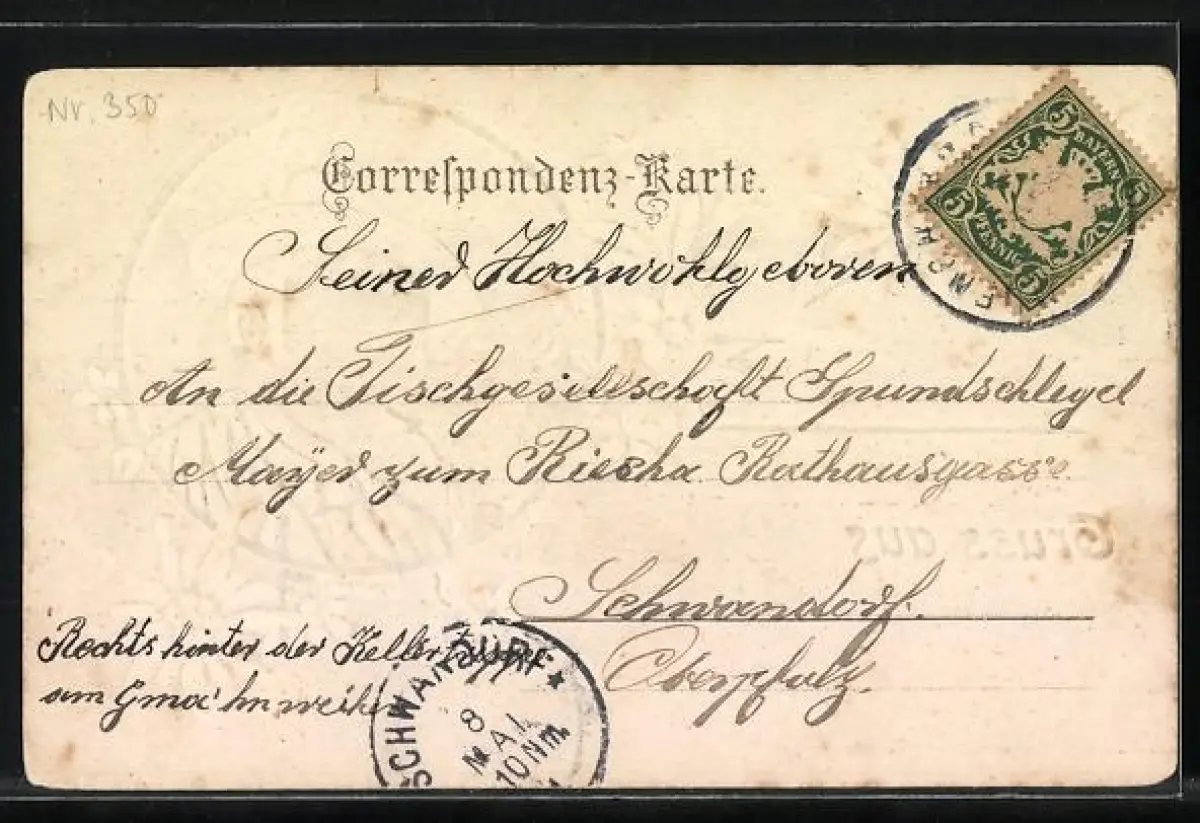 Nr. 350
Correspondenz-Karte.
5 BAYERN 5
5 PFENNIG 5
Seiner Hochwohlgeboren
An die Tischgesellschaft Spundschlegel
Mayer zum Rathausgasse
Gruss aus
Schwandorf.
Oberpfalz.
Rechts hinter der Kellertreppe
am
SCHWANDORF
8
MAI
10 Nm